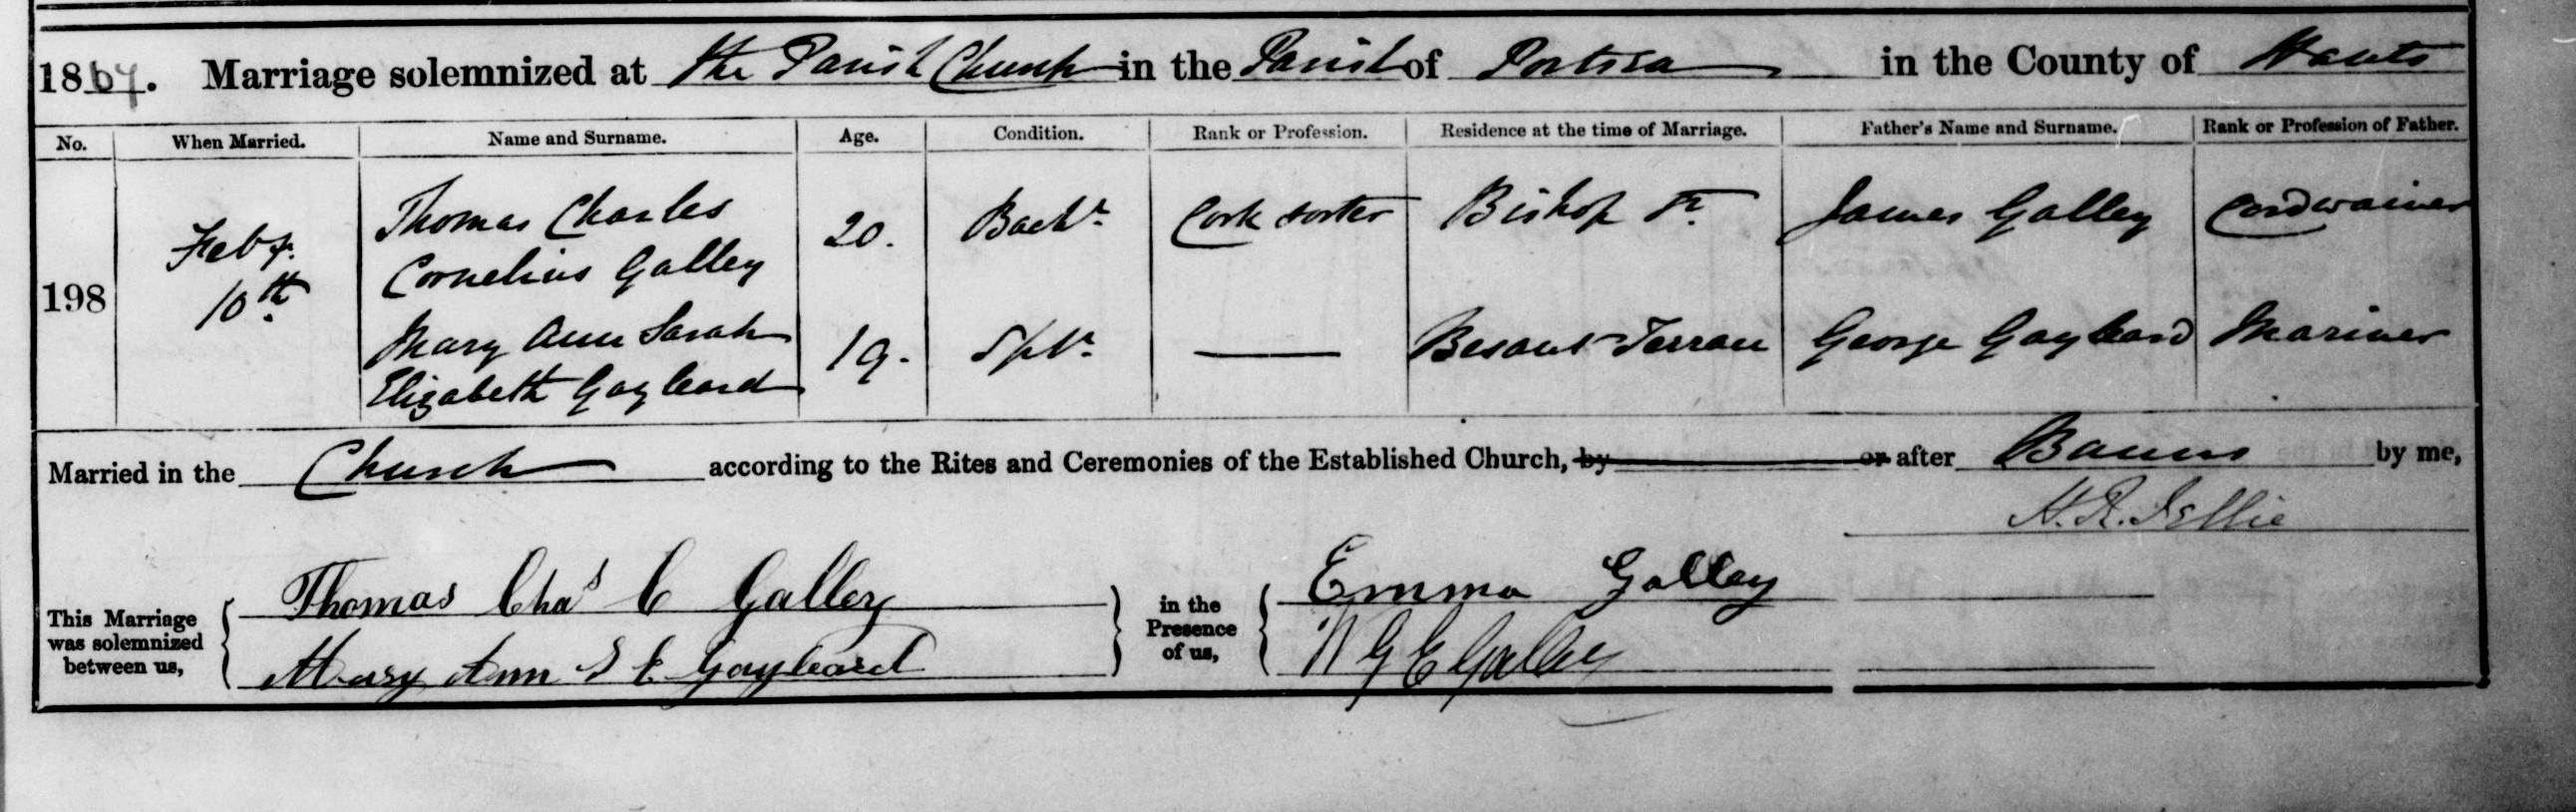 1867. Marriage solemnized at the Parish Church in the Parish of Portsea in the County of Hants
No. When Married. Name and Surname. Age. Condition. Rank or Profession. Residence at the time of Marriage. Father's Name and Surname. Rank or Profession of Father.
198 Feby. 10th Thomas Charles Cornelius Galley 20. Bachr. Cork sorter Bishop St. James Galley Cordwainer
Mary Ann Sarah Elizabeth Gayleard 19. Spr. Besant Terrace George Gayleard Mariner
Married in the Church according to the Rites and Ceremonies of the Established Church, by or after Banns by me,
This Marriage was solemnized between us,
Thomas Chas C Galley
Mary Ann S E Gayleard
in the Presence of us,
Emma Galley
W G E Galley